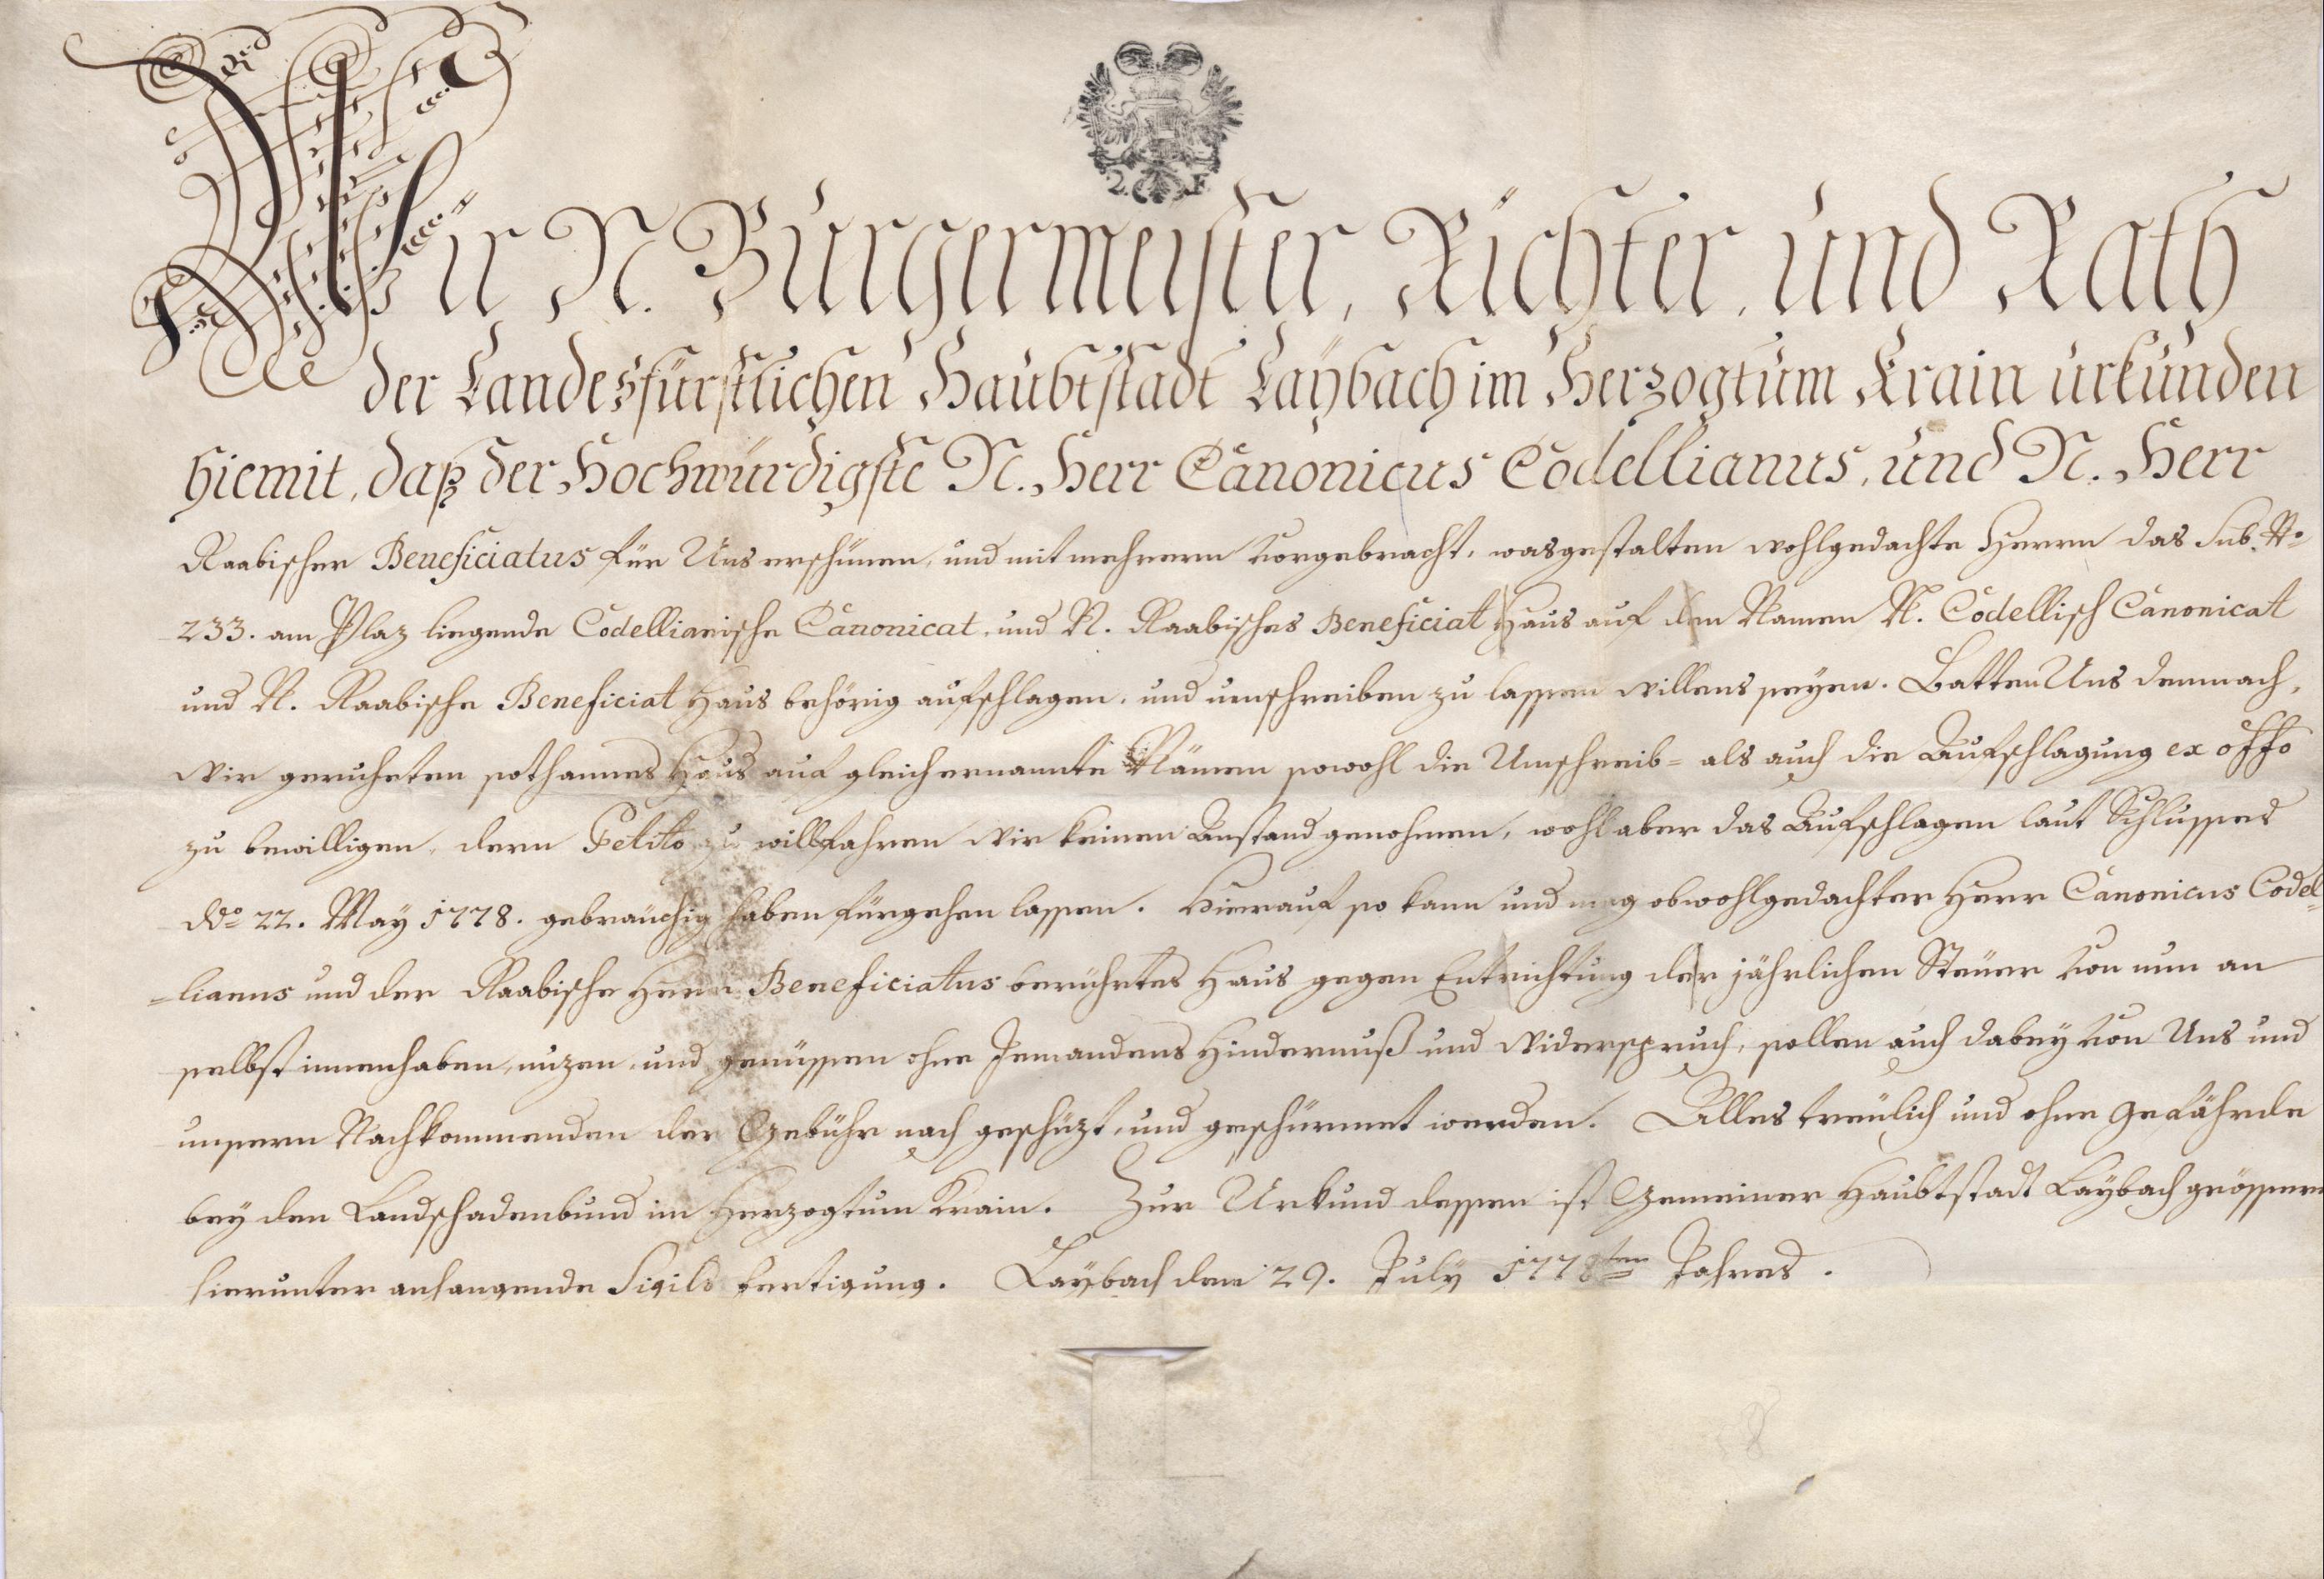 2. F.
Wir N. Bürgermeister, Richter, und Rath
der Landesfürstlichen Haubtstadt Laÿbach im Herzogtum Krain urkunden
hiemit, daß der Hochwürdigste N. Herr Canonicus Codellianus, und N. Herr
Raabischer Beneficiatus für Uns erschinen, und mit mehrern vorgebracht, wasgestalten wohlgedachte Herrn das Sub. No
233. am Plaz liegende Codellianische Canonicat, und N. Raabisches Beneficiat Haus auf den Namen N. Codellisch Canonicat
und N. Raabische Beneficiat Haus behörig aufschlagen, und umschreiben zu lassen willens seyen. Batten Uns demnach,
wir geruheten sothannes Haus auf gleich ernannte Nämen sowohl die Umschreib= als auch die Aufschlagung ex offo
zu bewilligen, dem Petito zu willfahren wir keinen Anstand genohmen, wohl aber das Aufschlagen laut Schlusses
ddo 22. May 1778. gebräuchig haben fürgehen lassen. Hierauf so kann und mag obwohlgedachter Herr Canonicus Codel=
=lianus und der Raabische Herr Beneficiatus berührtes Haus gegen Entrichtung der jährlichen Steüer von nun an
selbst innenhaben, nuzen, und genüssen ohne Jemandens Hindernuß und Widerspruch, sollen auch dabey von Uns und
unsern Nachkommenden der Gebühr nach geschüzt, und geschürmet werden. Alles treulich und ohne Gefährde
bey den Landschadenbund im Herzogtum Krain. Zur Urkund dessen ist Gemeiner Haubtstadt Laybach grössern
hierunter anhangende Sigils Fertigung. Laybach den 29. July 1778ten Jahres.